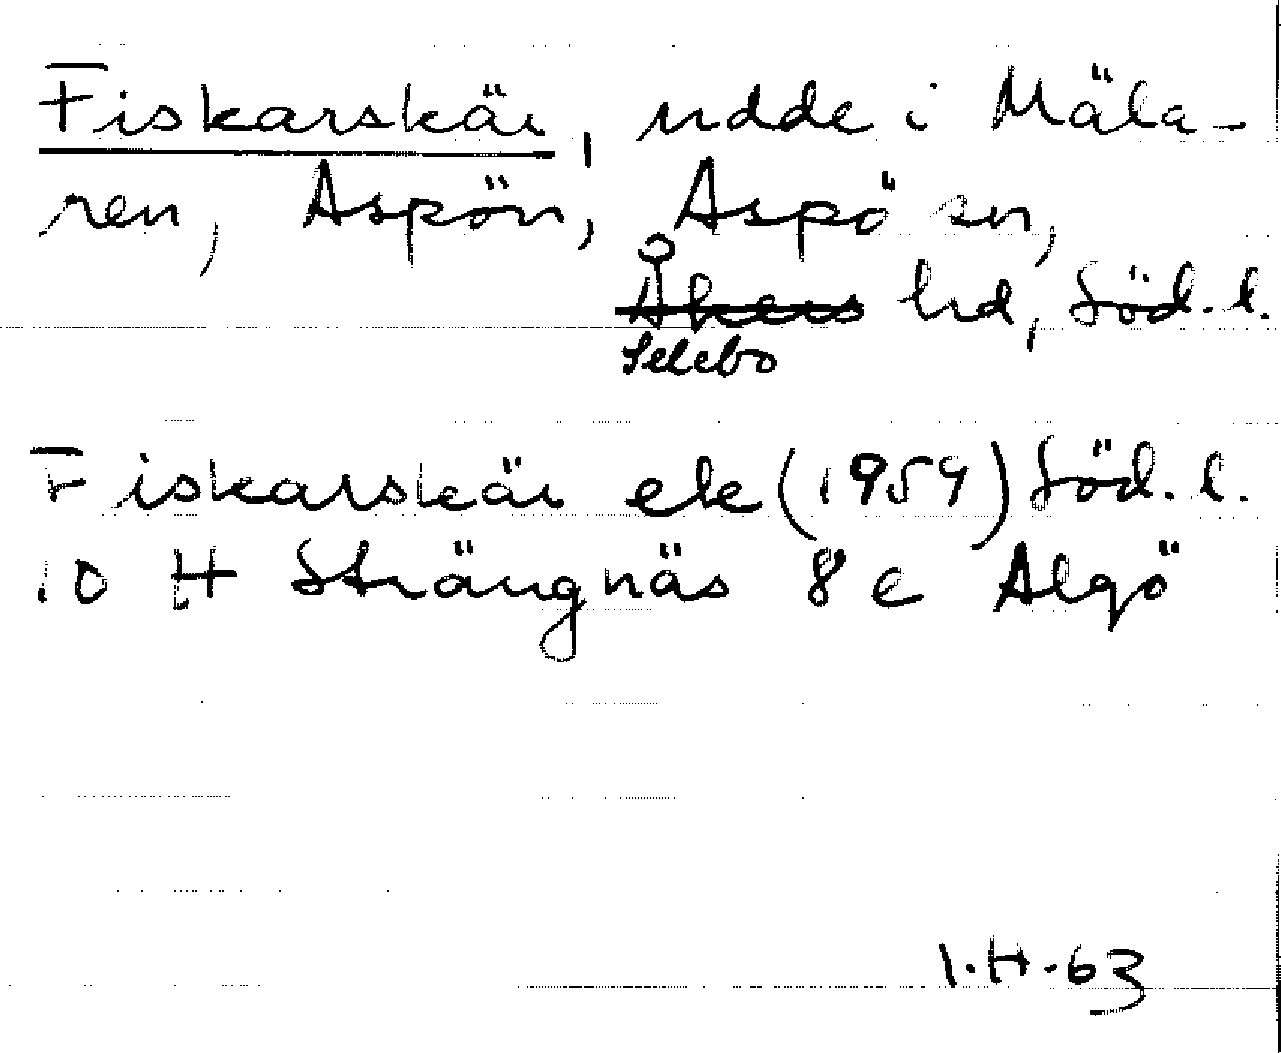 Fiskarskär, udde i Mäla-
ren, Aspön, Aspö sn,
Åkers hd, Söd. l.
Selebo
Fiskarskär ek (1959) Söd. l.
10 H Strängnäs 8 e Algö
I.H.63